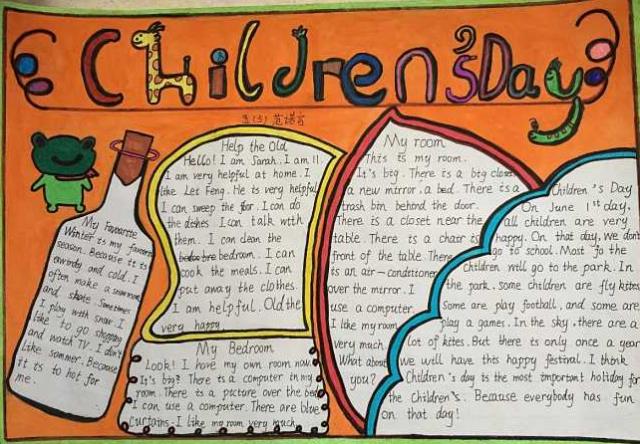 Children'sDay
五(5)范语言
Help the Old
Hello! I am Sarah. I am 11.
I am very helpful at home. I
like Let Feng. He is very helpful
I can sweep the for. I can do
the dishes I can talk wtth
them. I can clean the
bedroom. I can
cook the meals. I can
put away the clothes.
I am helpful. Old the
very happy.
My room
This is my room.
It's big. There is a big closet
a new mirror, a bed. There is a
trash bin behind the door.
There is a closet near the
table. There is a chair is
front of the table. There
is an air-conditioner
over the mirror. I
use a computer.
I like my room
very much.
What about
you?
Children's Day
On June 1st day,
all children are very
happy. On that day, we don't
go to school. Most fo the
children will go to the park. In
the park, some children are fly kites
Some are play football, and some are
play a games. In the sky, there are a
lot of kites. But there is only once a year
we will have this happy festival. I think
Children's day is the most important holiday for
the Children's. Because everybody has fun
on that day!
My Favourite
Winter is my favorite
season. Because it is
windy and cold. I
often make a snowman
and skate. Sometimes
I play with snow. I
like to go shopping
and watch TV. I don't
like sommer. Because
it is to hot for
me.
My Bedroom
Look! I have my own room now.
It's big? There is a computer in my
room. There is a picture over the bed
I can use a computer. There are blue
curtains. I like my room very much